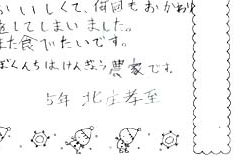 いしくて、何回もおかわり
をしてしまいました。
また食べたいです。
ぼくんちはけんぎょう農家です。
5年 北庄孝至